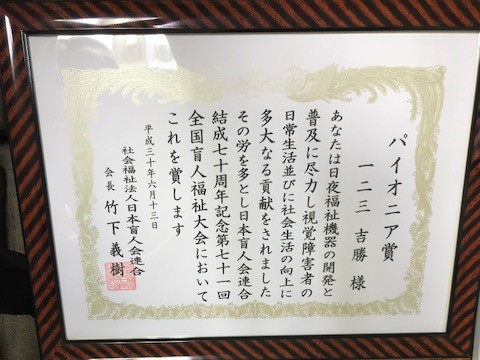 パイオニア賞
一二三 吉勝 様
あなたは日夜福祉機器の開発と
普及に尽力し視覚障害者の
日常生活並びに社会生活の向上に
多大なる貢献をされました
その労を多とし日本盲人会連合
結成七十周年記念第七十一回
全国盲人福祉大会において
これを賞します
平成三十年六月十三日
社会福祉法人日本盲人会連合
会長 竹下義樹